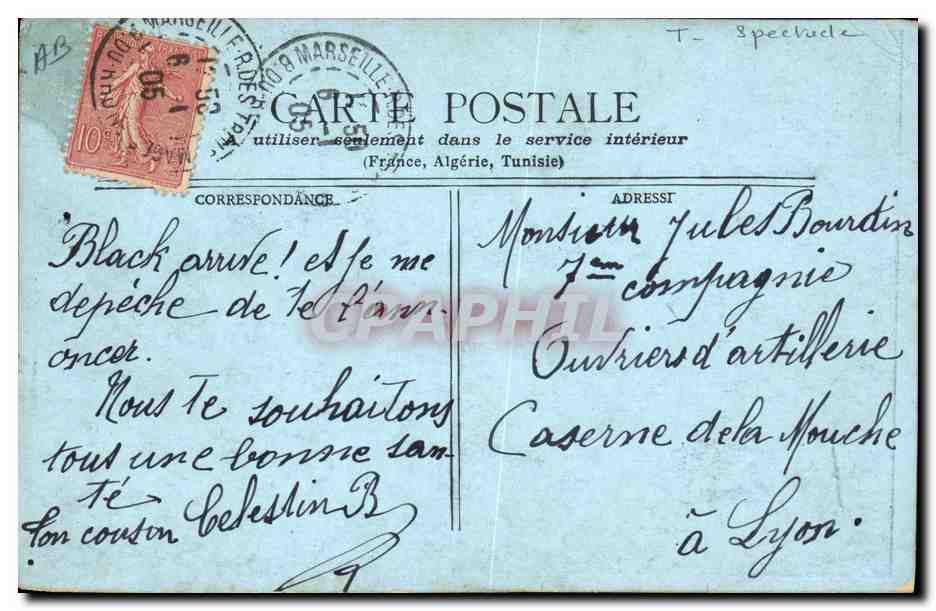 AB
T- Spectacle
MARSEILLE
6 -1
05
MARSEILLE
6 -1
05
10c
CARTE POSTALE
A utiliser seulement dans le service intérieur
(France, Algérie, Tunisie)
CORRESPONDANCE
Black arrive! et je me
depêche de te l'ann-
oncer.
Nous te souhaitons
tous une bonne san-
té
Ton cousin Celestin B
ADRESSE
Monsieur Jules Bourdin
7em compagnie
Ouvriers d'artillerie
Caserne de la Mouche
à Lyon.
CPAPHIL